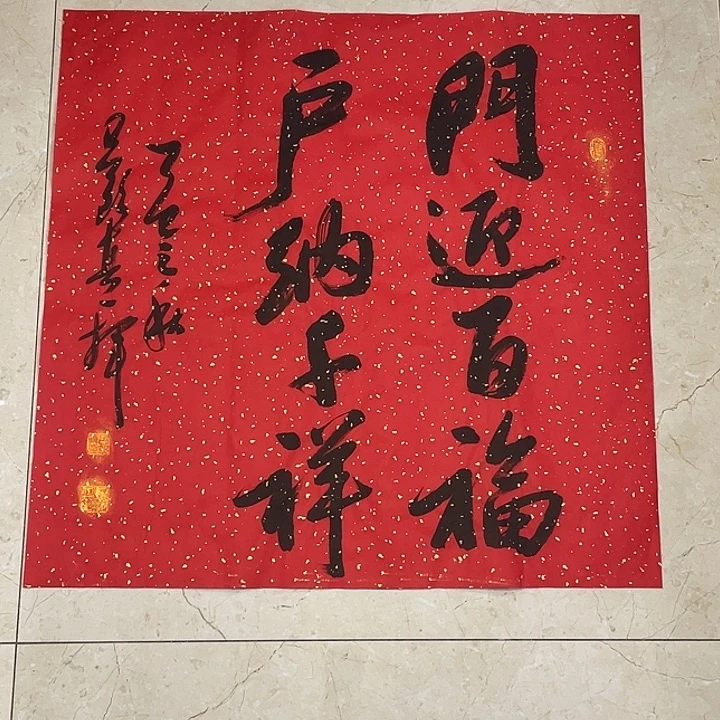 門迎百福
户納千祥
乙巳之秋